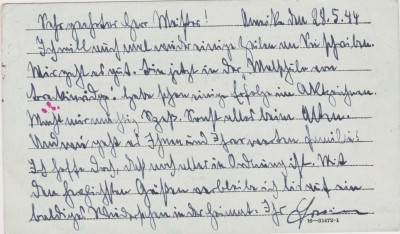 Sehr geehrter Herr Meister! Amerika den 29.5.44
Ich will auch mal wieder einige Zeilen an Sie schreiben.
Mir geht es gut. Bin jetzt in der
habe schon einige Erfolge im Aktzeichnen.
Macht mir Spaß. Sonst alles beim Alten.
Und wie geht es Ihnen und Ihrer werten Familie?
Ich hoffe doch, daß noch alles in Ordnung ist. Mit
den herzlichsten Grüßen verbleibe ich bis auf ein
baldiges Wiedersehen in der Heimat: Ihr
16—31472-1